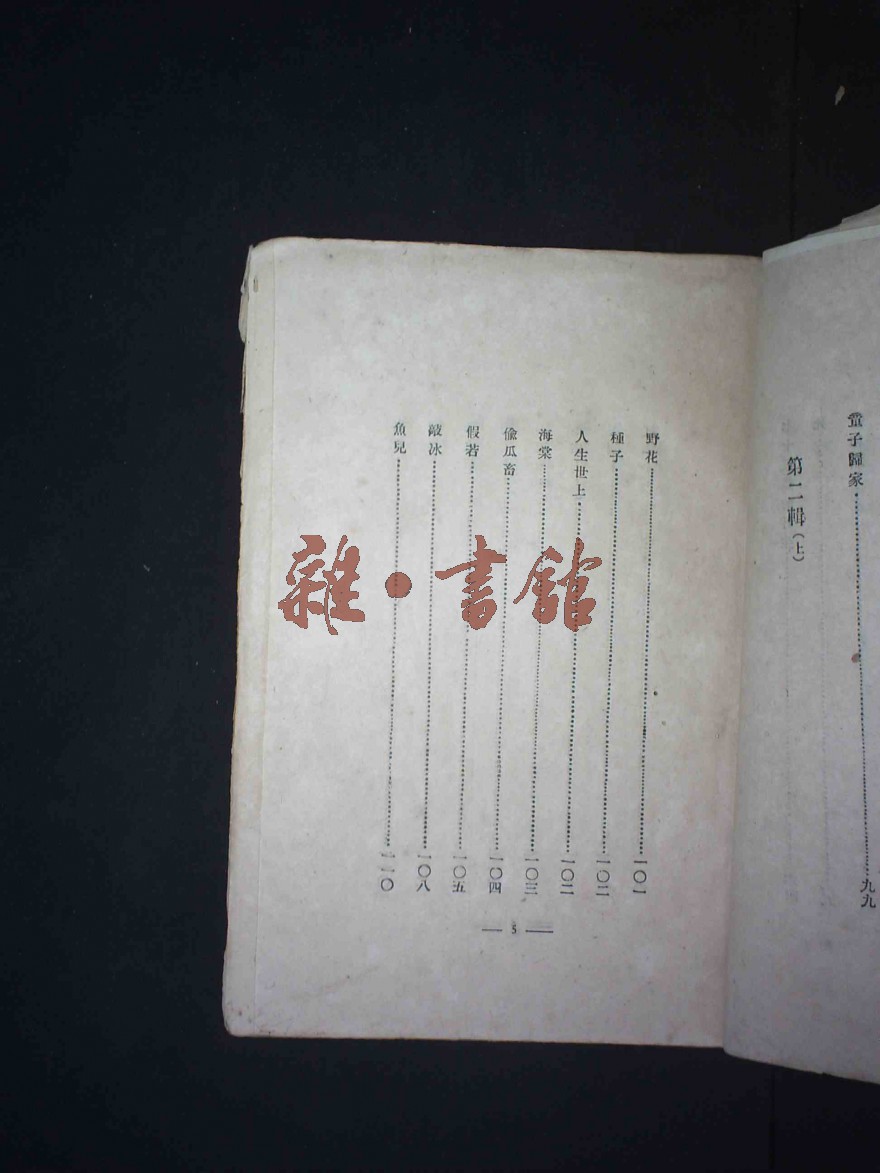 童子歸家……九九
第二輯(上)
野花……一〇一
種子……一〇二
人生世上……一〇二
海棠……一〇三
偸瓜畜……一〇四
假若……一〇五
敲冰……一〇八
魚兒……一一〇
— 5 —
雜·書館